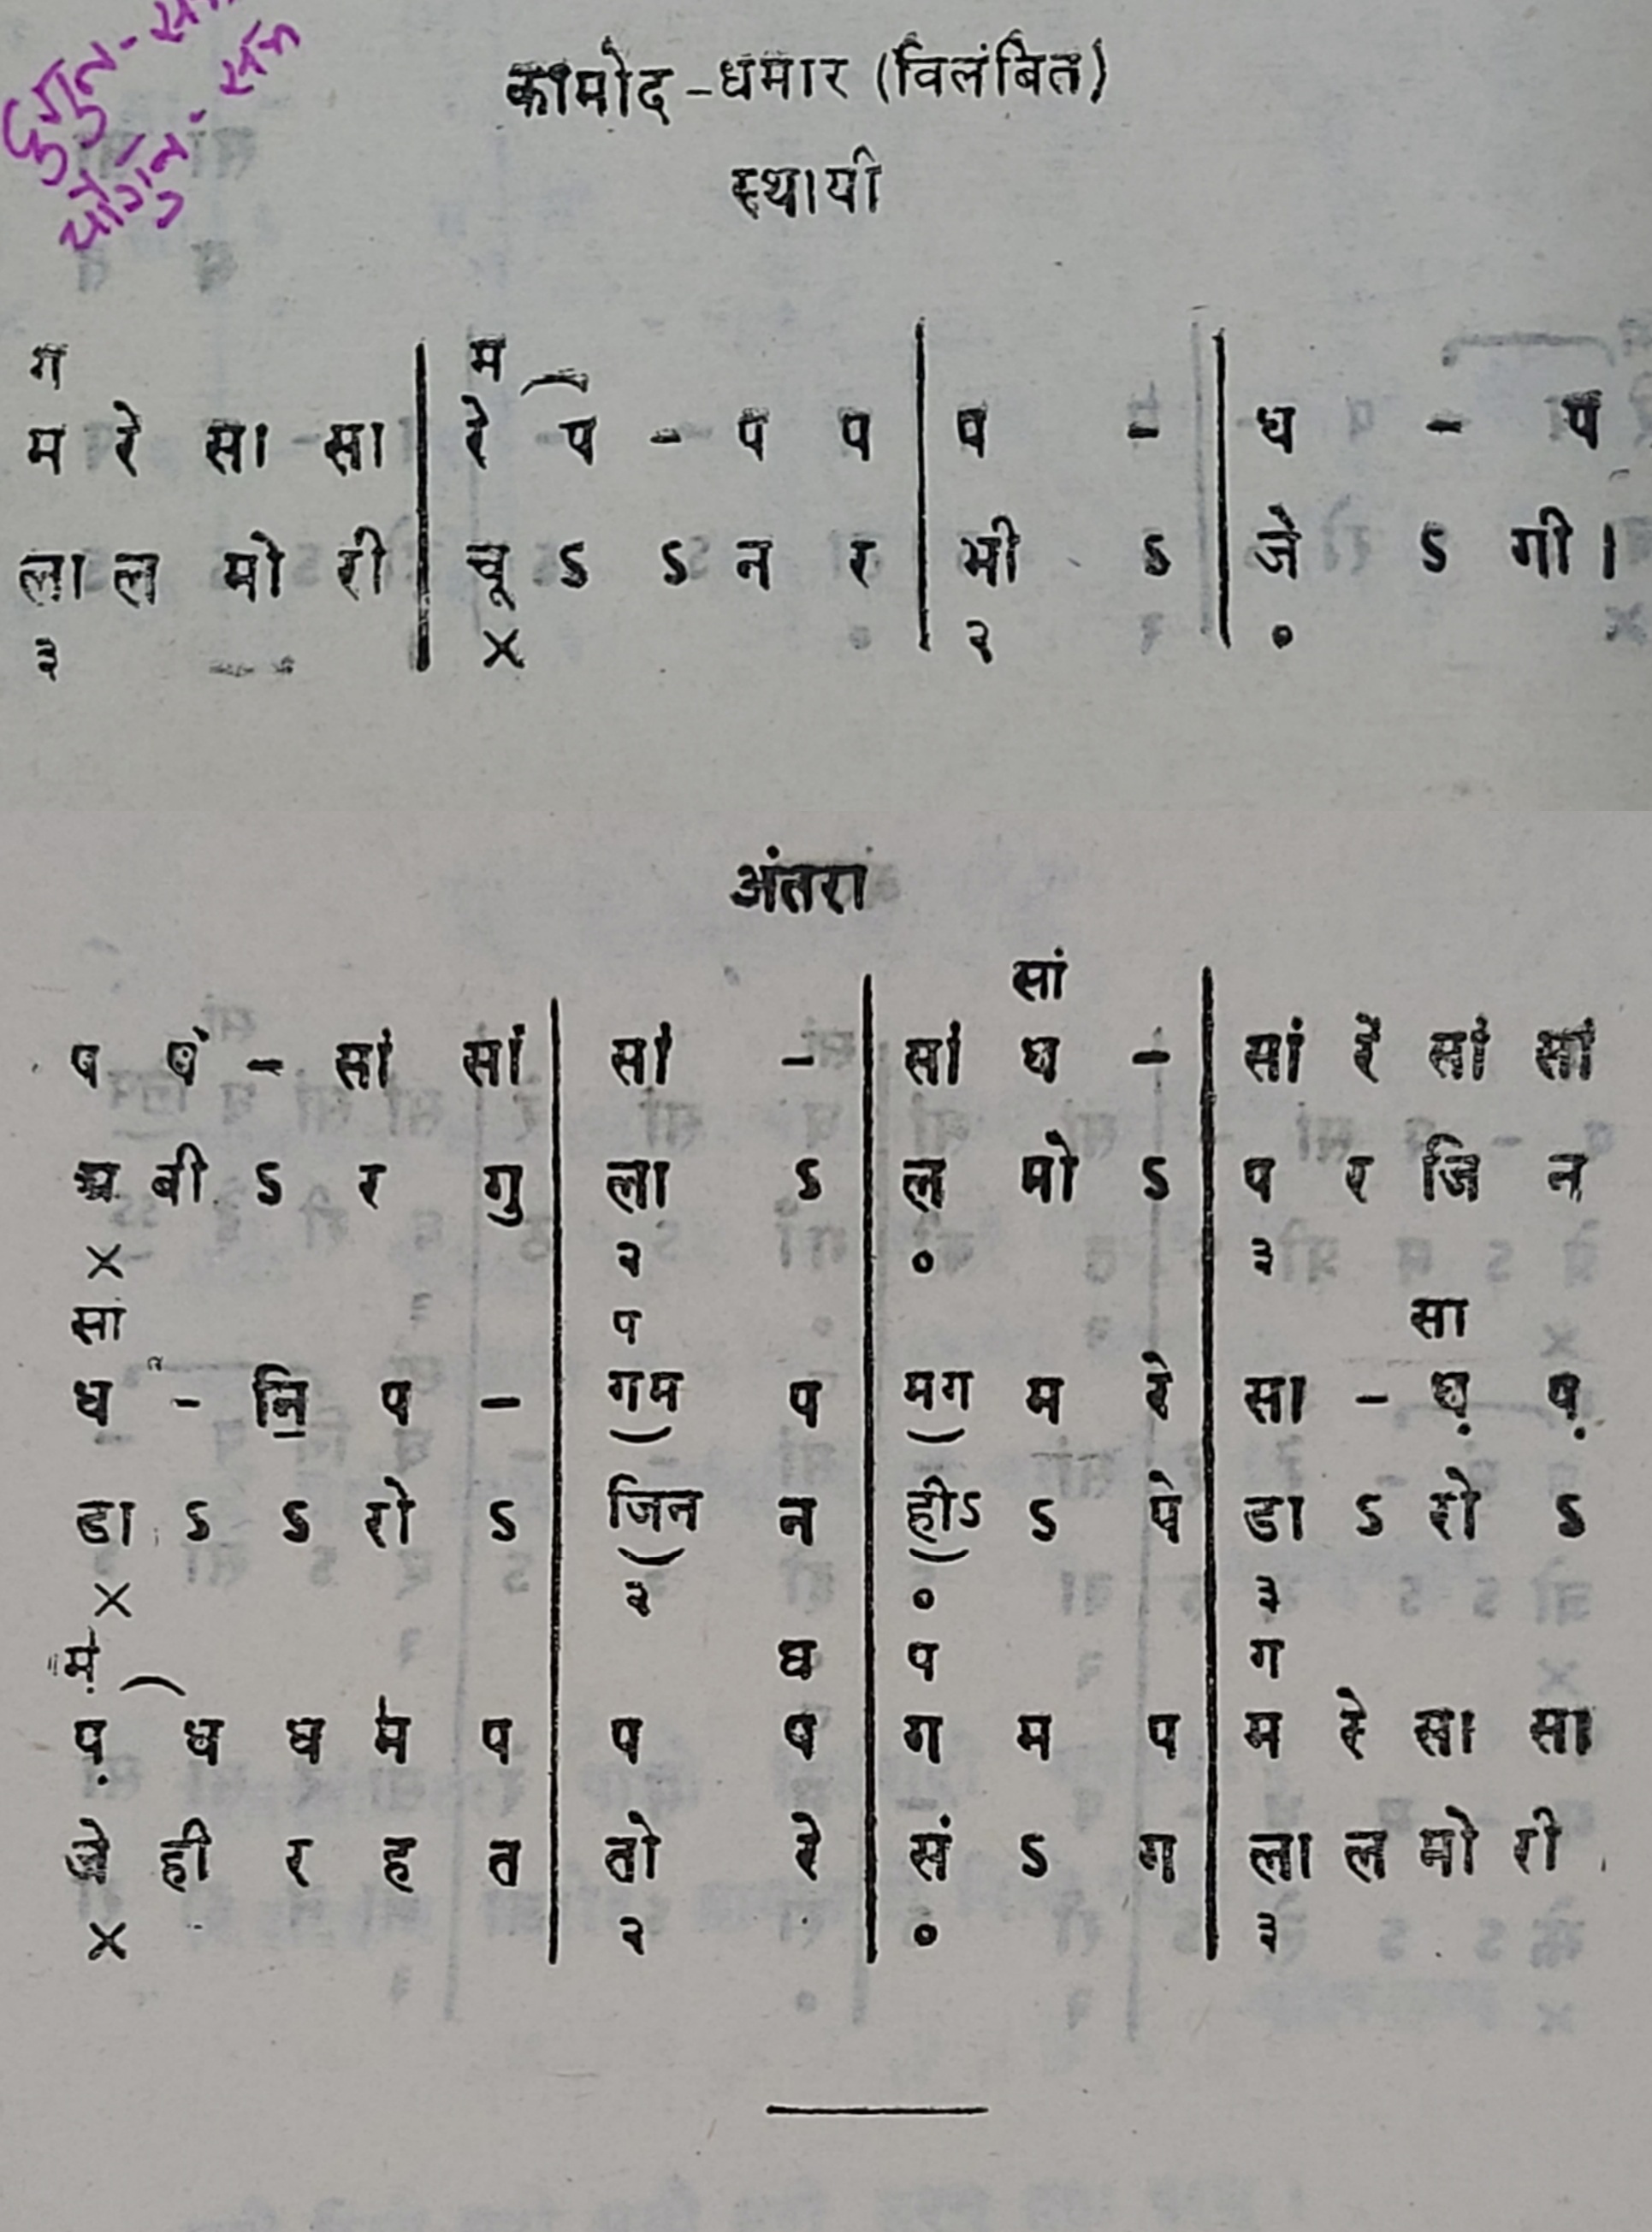 दुगुन-
चौगुन-
कामोद-धमार (विलंबित)
स्थायी
ग म
म रे सा सा | रे प - प प | प - | ध - प
ला ल मो री | चू ऽ ऽ न र | भी ऽ | जे ऽ गी।
३ X २ ०
अंतरा
सां
प प - सां सां | सां - | सां ध - | सां रें सां सां
अ बी ऽ र गु | ला ऽ | ल मो ऽ | प र जि न
X २ ० ३
सां प सा
ध - नि॒ प - | गम प | मग म रे | सा - ध़ प़
डा ऽ ऽ रो ऽ | जिन न | हीऽ ऽ पे | डा ऽ रो ऽ
X २ ० ३
म़॑ ध प ग
प़ ध ध म॑ प | प प | ग म प | म रे सा सा
जे ही र ह त | तो रे | सं ऽ ग | ला ल मो री
X २ ० ३